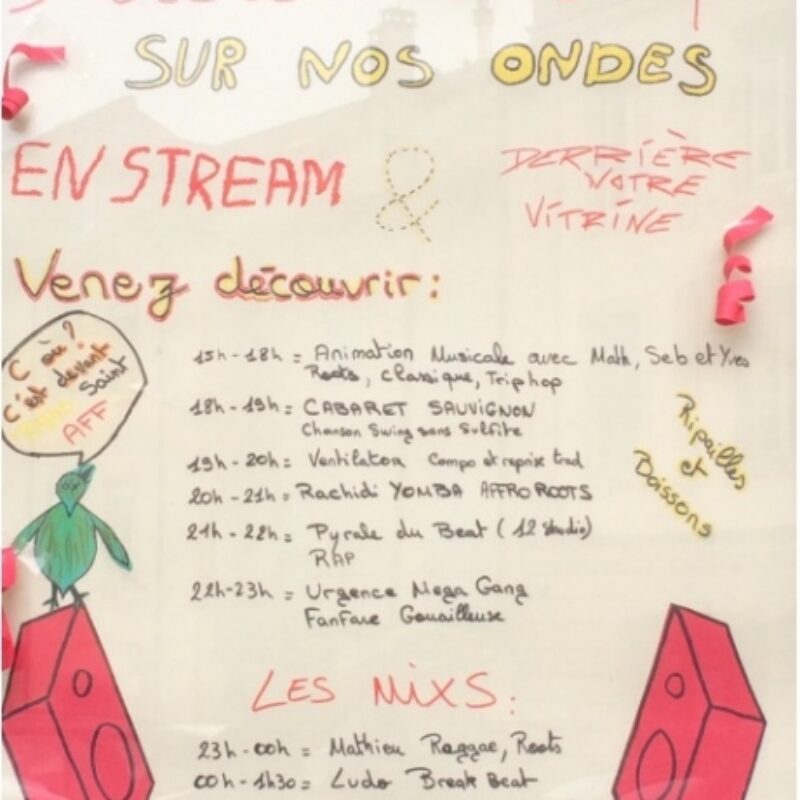 SUR NOS ONDES
EN STREAM
&
DERRIÈRE
NOTRE
VITRINE
Venez découvrir:
C où?
c'est devant
Radio Saint
AFF
15h - 18h = Animation Musicale avec Math, Seb et Yves
Roots, classique, Trip hop
18h - 19h = CABARET SAUVIGNON
Chanson Swing sans Sulfite
19h - 20h = Ventilator Compo et reprise trad
20h - 21h = Rachidi YOMBA AFFRO ROOTS
21h - 22h = Pyrale du Beat (12 studio)
RAP
22h-23h = Urgence Mega Gang
FanFare Gouailleuse
Ripailles
et
Boissons
LES MIXS:
23h - 00h = Mathieu Raggae, Roots
00h - 1h30 = Ludo Break Beat